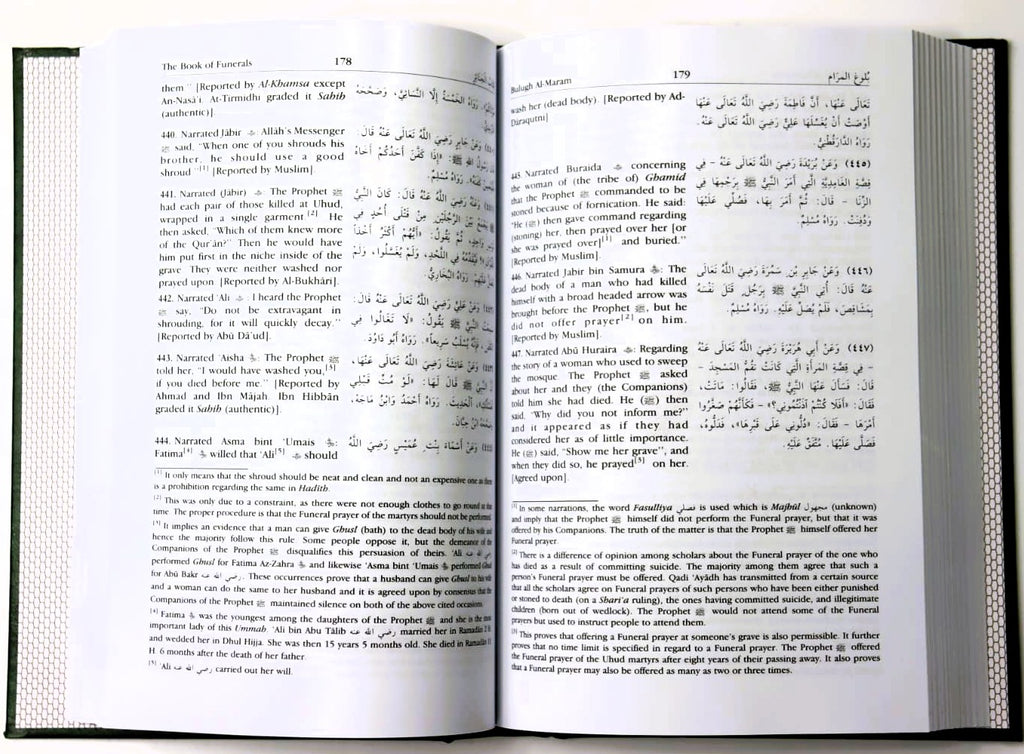 The Book of Funerals
178
them " [Reported by Al-Khamsa except
An-Nasā'i. At-Tirmidhi graded it Sahih
(authentic)]
440. Narrated Jābir : Allāh's Messenger
ﷺ said, "When one of you shrouds his
brother, he should use a good
shroud "[1] [Reported by Muslim].
441. Narrated (Jābir) : The Prophet ﷺ
had each pair of those killed at Uhud,
wrapped in a single garment.[2] He
then asked, "Which of them knew more
of the Qur'ān?" Then he would have
him put first in the niche inside of the
grave They were neither washed nor
prayed upon [Reported by Al-Bukhāri].
442. Narrated 'Ali : I heard the Prophet
ﷺ say, "Do not be extravagant in
shrouding, for it will quickly decay."
[Reported by Abū Dā'ud].
443. Narrated 'Aisha : The Prophet ﷺ
told her, "I would have washed you,[3]
if you died before me." [Reported by
Ahmad and Ibn Mājah. Ibn Hibbān
graded it Sahih (authentic)].
444. Narrated Asma bint 'Umais :
Fatima[4] willed that 'Ali[5] should
رَوَاهُ الْخَمْسَةُ إِلَّا النَّسَائِيَّ، وَصَحَّحَهُ
وَعَنْ جَابِرٍ رَضِيَ اللَّهُ تَعَالَى عَنْهُ قَالَ:
رَسُولُ اللهِ ﷺ: «إِذَا كَفَّنَ أَحَدُكُمْ أَخَاهُ
كَفَنَهُ». رَوَاهُ مُسْلِمٌ.
وَعَنْهُ رَضِيَ اللَّهُ عَنْهُ قَالَ: كَانَ النَّبِيُّ
يَجْمَعُ بَيْنَ الرَّجُلَيْنِ مِنْ قَتْلَى أُحُدٍ فِي
وَاحِدٍ، ثُمَّ يَقُولُ: «أَيُّهُمْ أَكْثَرُ أَخْذاً
فَيُقَدِّمُهُ فِي اللَّحْدِ، وَلَمْ يُغَسَّلُوا، وَلَمْ
عَلَيْهِمْ. رَوَاهُ الْبُخَارِيُّ.
وَعَنْ عَلِيٍّ رَضِيَ اللَّهُ تَعَالَى عَنْهُ قَالَ:
سَمِعْتُ النَّبِيَّ ﷺ يَقُولُ: «لَا تَغَالَوْا فِي
فَإِنَّهُ يُسْلَبُ سَرِيعاً». رَوَاهُ أَبُو دَاوُدَ.
وَعَنْ عَائِشَةَ رَضِيَ اللَّهُ تَعَالَى عَنْهَا،
النَّبِيَّ ﷺ قَالَ لَهَا: «لَوْ مُتِّ قَبْلِي
الْحَدِيثَ. رَوَاهُ أَحْمَدُ وَابْنُ مَاجَهْ،
ابْنُ حِبَّانَ.
وَعَنْ أَسْمَاءَ بِنْتِ عُمَيْسٍ رَضِيَ اللَّهُ
[1] It only means that the shroud should be neat and clean and not an expensive one as there
is a prohibition regarding the same in Hadith.
[2] This was only due to a constraint, as there were not enough clothes to go round at the
time. The proper procedure is that the Funeral prayer of the martyrs should not be performed
[3] It implies an evidence that a man can give Ghusl (bath) to the dead body of his wife and
hence the majority follow this rule. Some people oppose it, but the demeanor of the
Companions of the Prophet ﷺ disqualifies this persuasion of theirs. 'Ali رضي الله عنه
performed Ghusl for Fatima Az-Zahra and likewise 'Asma bint 'Umais performed Ghusl
for Abū Bakr رضي الله عنه. These occurrences prove that a husband can give Ghusl to his wife
and a woman can do the same to her husband and it is agreed upon by consensus that the
Companions of the Prophet ﷺ maintained silence on both of the above cited occasions.
[4] Fatima was the youngest among the daughters of the Prophet ﷺ and she is the most
important lady of this Ummah. 'Ali bin Abu Tālib رضي الله عنه married her in Ramadān 2 H
and wedded her in Dhul Hijja. She was then 15 years 5 months old. She died in Ramadān 11
H. 6 months after the death of her father.
[5] 'Ali رضي الله عنه carried out her will.
Bulugh Al-Maram
179
بُلُوغ المَرَام
wash her (dead body). [Reported by Ad-
Dāraqutni]
445. Narrated Buraida concerning
the woman of (the tribe of) Ghamid
that the Prophet ﷺ commanded to be
stoned because of fornication. He said:
"He ﷺ then gave command regarding
(stoning) her, then prayed over her [or
she was prayed over][1] and buried."
[Reported by Muslim].
446. Narrated Jabir bin Samura : The
dead body of a man who had killed
himself with a broad headed arrow was
brought before the Prophet ﷺ, but he
did not offer prayer[2] on him.
[Reported by Muslim].
447. Narrated Abū Huraira : Regarding
the story of a woman who used to sweep
the mosque. The Prophet ﷺ asked
about her and they (the Companions)
told him she had died. He (ﷺ) then
said, "Why did you not inform me?"
and it appeared as if they had
considered her as of little importance.
He (ﷺ) said, "Show me her grave", and
when they did so, he prayed[3] on her.
[Agreed upon].
تَعَالَى عَنْهَا، أَنَّ فَاطِمَةَ رَضِيَ اللَّهُ تَعَالَى عَنْهَا
أَوْصَتْ أَنْ يُغَسِّلَهَا عَلِيٌّ رَضِيَ اللَّهُ تَعَالَى عَنْهُ.
رَوَاهُ الدَّارَقُطْنِيُّ.
(٤٤٥) وَعَنْ بُرَيْدَةَ رَضِيَ اللَّهُ تَعَالَى عَنْهُ - فِي
قِصَّةِ الْغَامِدِيَّةِ الَّتِي أَمَرَ النَّبِيُّ ﷺ بِرَجْمِهَا فِي
الزِّنَا - قَالَ: ثُمَّ أَمَرَ بِهَا، فَصُلِّيَ عَلَيْهَا
وَدُفِنَتْ. رَوَاهُ مُسْلِمٌ.
(٤٤٦) وَعَنْ جَابِرِ بْنِ سَمُرَةَ رَضِيَ اللَّهُ تَعَالَى
عَنْهُ قَالَ: أُتِيَ النَّبِيُّ ﷺ بِرَجُلٍ قَتَلَ نَفْسَهُ
بِمَشَاقِصَ، فَلَمْ يُصَلِّ عَلَيْهِ. رَوَاهُ مُسْلِمٌ.
(٤٤٧) وَعَنْ أَبِي هُرَيْرَةَ رَضِيَ اللَّهُ تَعَالَى عَنْهُ
- فِي قِصَّةِ الْمَرْأَةِ الَّتِي كَانَتْ تَقُمُّ الْمَسْجِدَ -
قَالَ: فَسَأَلَ عَنْهَا النَّبِيُّ ﷺ، فَقَالُوا: مَاتَتْ،
فَقَالَ: «أَفَلَا كُنْتُمْ آذَنْتُمُونِي؟» - فَكَأَنَّهُمْ صَغَّرُوا
أَمْرَهَا - فَقَالَ: «دُلُّونِي عَلَى قَبْرِهَا»، فَدَلُّوهُ،
فَصَلَّى عَلَيْهَا. مُتَّفَقٌ عَلَيْهِ.
[1] In some narrations, the word Fasulliya فصلي is used which is Majhūl مجهول (unknown)
and imply that the Prophet ﷺ himself did not perform the Funeral prayer, but that it was
offered by his Companions. The truth of the matter is that the Prophet ﷺ himself offered her
Funeral prayer.
[2] There is a difference of opinion among scholars about the Funeral prayer of the one who
has died as a result of committing suicide. The majority among them agree that such a
person's Funeral prayer must be offered. Qadi 'Ayādh has transmitted from a certain source
that all the scholars agree on Funeral prayers of such persons who have been either punished
or stoned to death (on a Shari'a ruling), the ones having committed suicide, and illegitimate
children (born out of wedlock). The Prophet ﷺ would not attend some of the Funeral
prayers but used to instruct people to attend them.
[3] This proves that offering a Funeral prayer at someone's grave is also permissible. It further
proves that no time limit is specified in regard to a Funeral prayer. The Prophet ﷺ offered
the Funeral prayer of the Uhud martyrs after eight years of their passing away. It also proves
that a Funeral prayer may also be offered as many as two or three times.